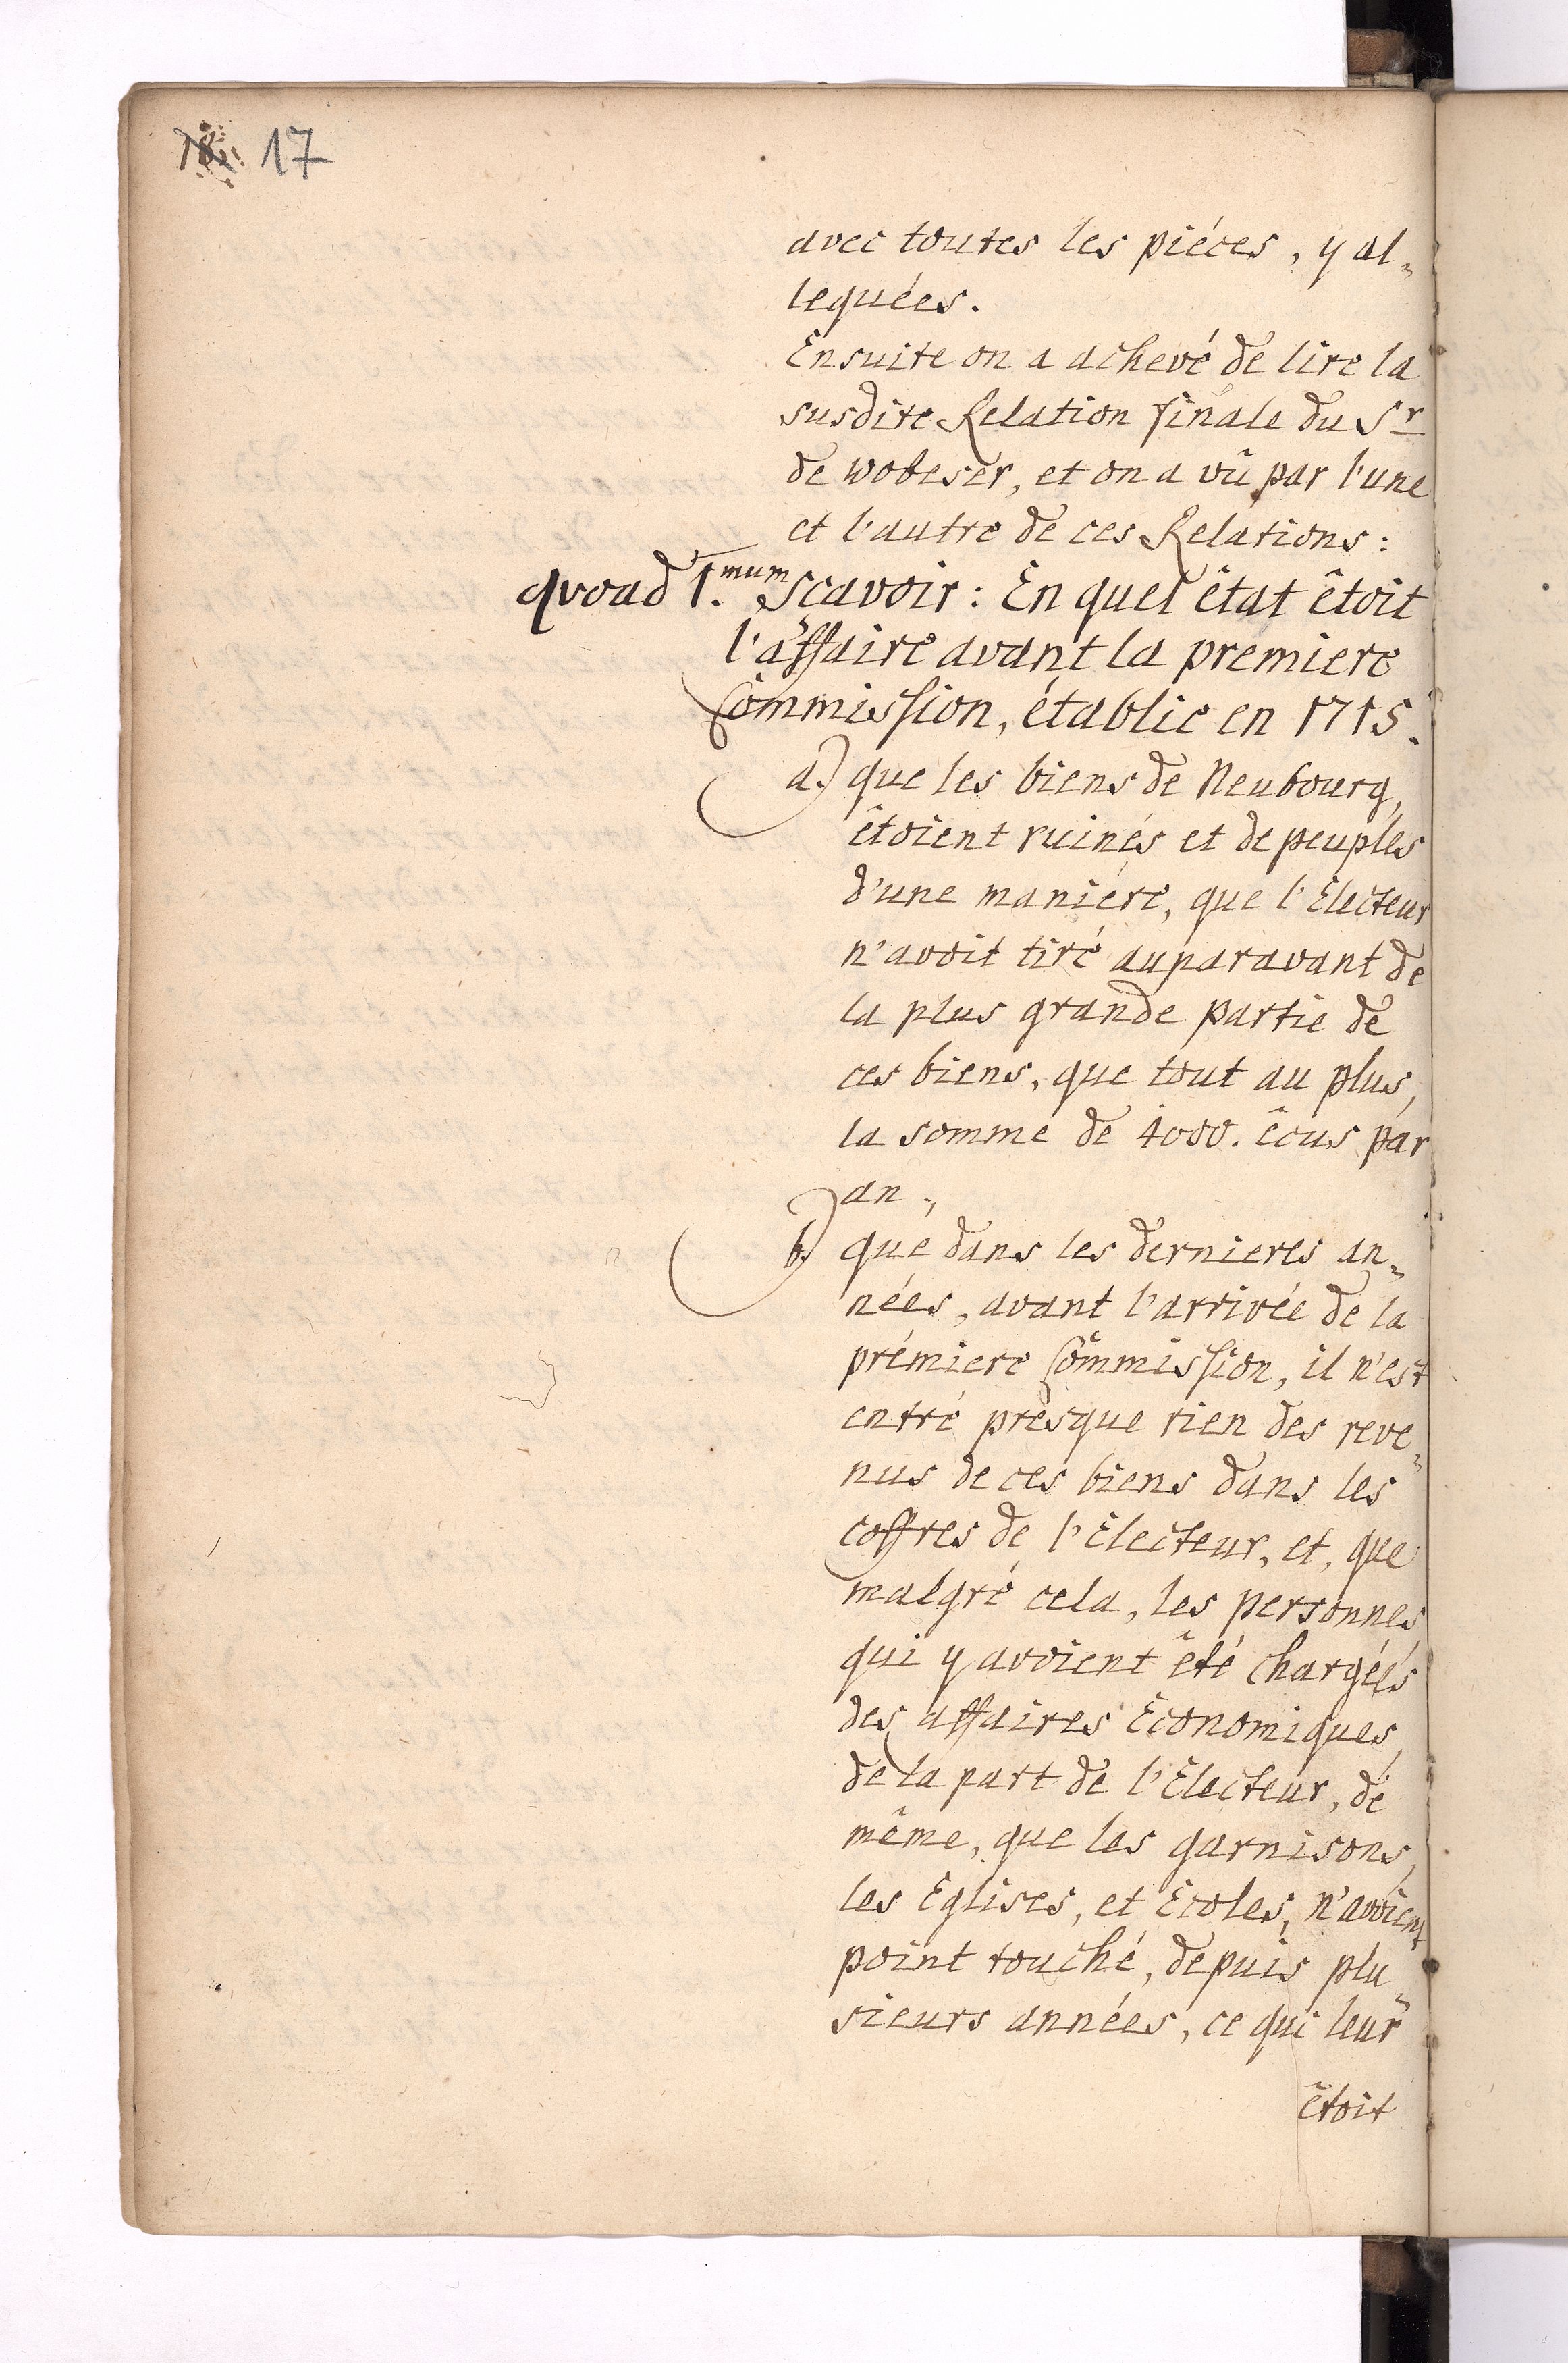 18. 17
avec toutes les piéces, y al„
leguées.
Ensuite on a achevé de lire la
susdite Relation finale du Sr
de wobeser, et on a vû par l'une
et l'autre de ces Relations:
quoad 1.mum Scavoir: En quel êtat êtoit
l'affaire avant la premiere
Commission, établie en 1715.
a.) que les biens de Neubourg,
êtoient ruinés et depeuplés
d'une maniére, que l'Electeur
n'avoit tiré auparavant de
la plus grande partie de
ces biens, que tout au plus,
la somme de 4000. êcus par
an.,
b.) que dans les dernieres an„
nées, avant l'arrivée de la
prémiere Commission, il n'est
entré presque rien des reve„
nus de ces biens dans les
coffres de l'Electeur, et, que
malgré cela, les personnes
qui y avoient êté chargéés
des affaires Economiques,
de la part de l'Electeur, de
même, que les garnisons,
les Eglises, et Ecoles, n'avoient
point touché, depuis plu„
sieurs années, ce qui leur
êtoit